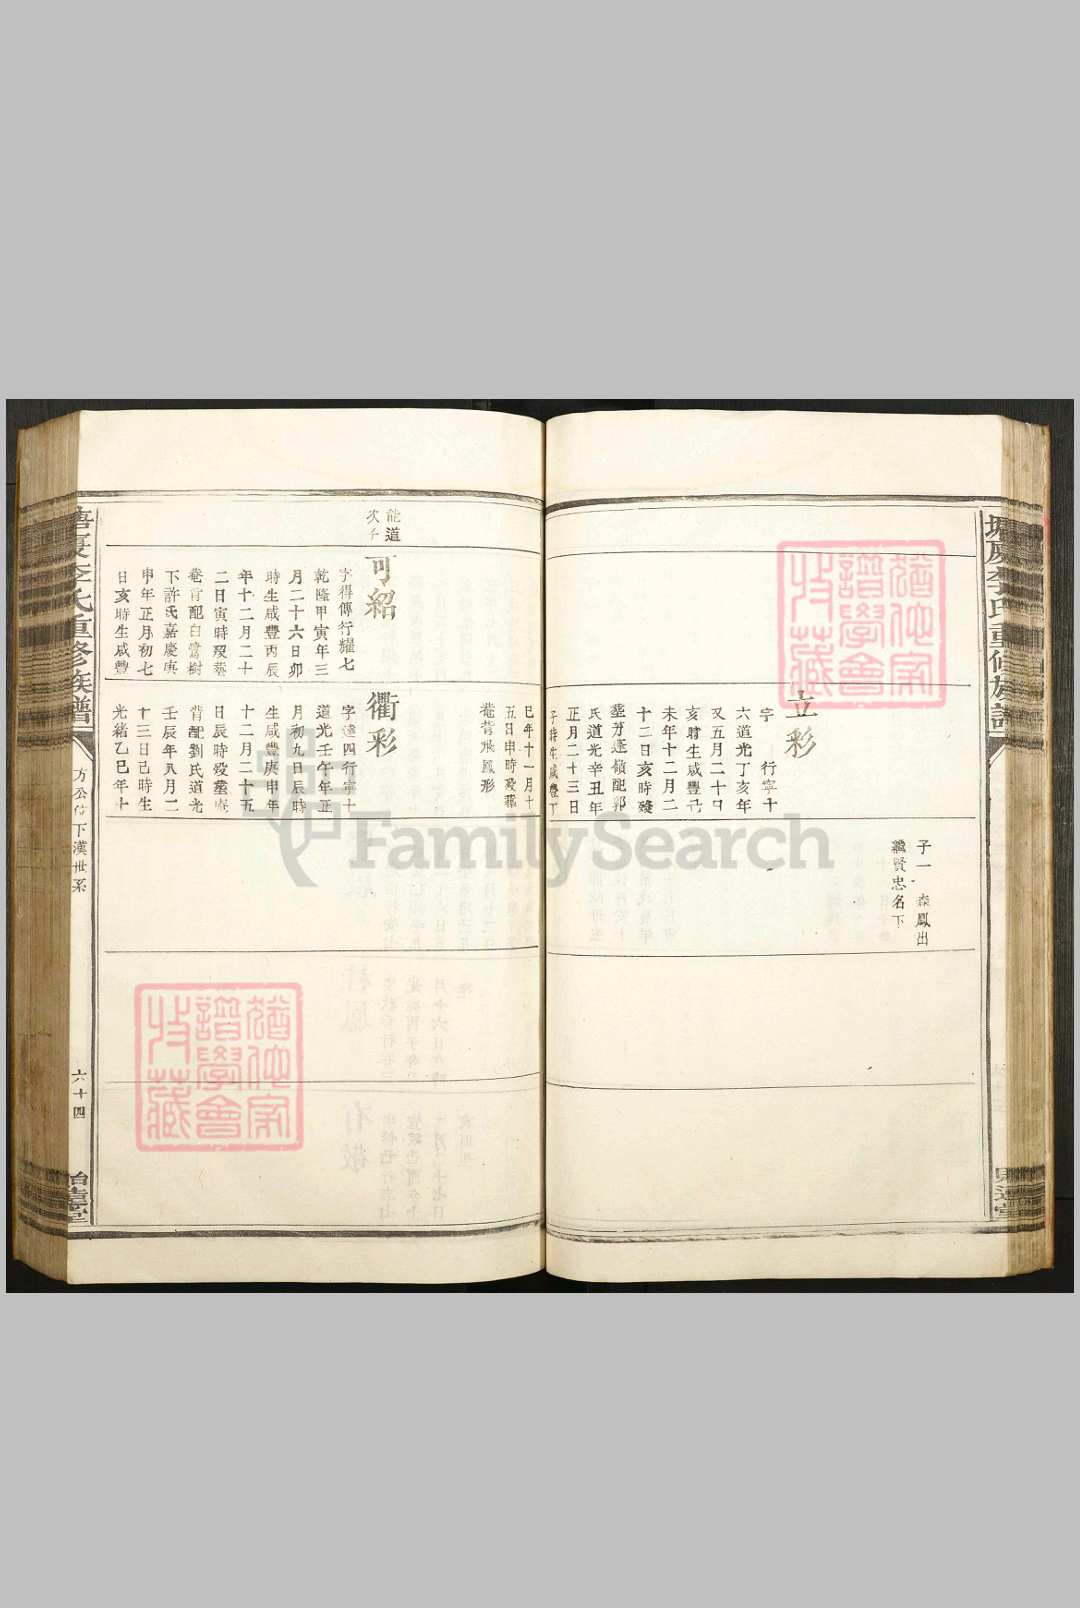 子一 森鳳出
繼賢忠名下
立彩
字 行寧十
六道光丁亥年
又五月二十日
亥時生咸豐己
未年十二月二
十二日亥時歿
氏道光辛丑年
正月二十三日
子時生咸豐丁
巳年十一月十
五日申時歿葬
菴背飛鳳形
能道
次子
可紹
字得傳行耀七
乾隆甲寅年三
月二十六日卯
時生咸豐丙辰
年十二月二十
二日寅時歿葬
菴背配白鷺樹
下許氏嘉慶庚
申年正月初七
日亥時生咸豐
衢彩
字遠四行寧十
道光壬午年正
月初九日辰時
生咸豐庚申年
十二月二十五
日辰時歿葬菴
背配劉氏道光
壬辰年八月二
十三日己時生
光緒乙巳年十
李氏重修族譜
六十四
FamilySearch